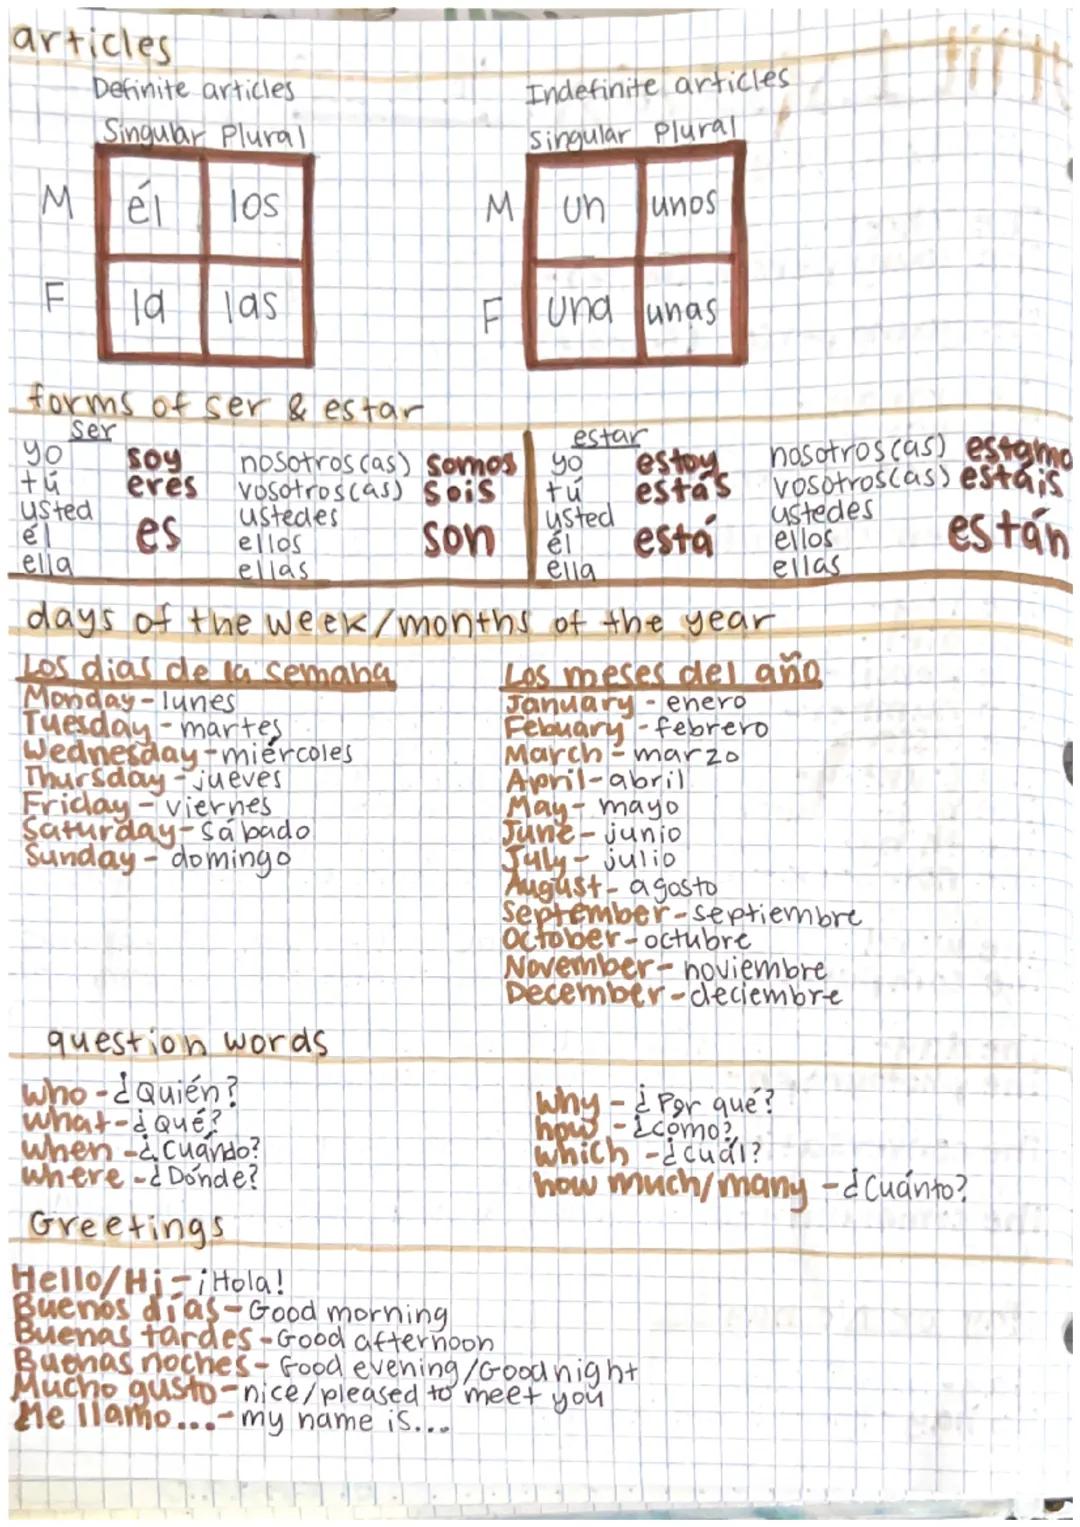 articles
Definite articles
Singular Plural
M él los
F la las
Indefinite articles
singular Plural
M un unos
F una unas
forms of ser & estar
ser
yo soy
tú eres
usted
él es
ella
nosotros(as) somos
vosotros(as) sois
ustedes
ellos son
ellas
estar
yo estoy
tú estás
usted
él está
ella
nosotros(as) estamo
vosotros(as) estáis
ustedes
ellos están
ellas
days of the week/months of the year
Los dias de la semana
Monday - lunes
Tuesday - martes
Wednesday - miércoles
Thursday - jueves
Friday - viernes
Saturday - sábado
Sunday - domingo
Los meses del año
January - enero
Febuary - febrero
March - marzo
April - abril
May - mayo
June - junio
July - julio
August - agosto
September - septiembre
October - octubre
November - noviembre
December - deciembre
question words
who - ¿Quién?
what - ¿Qué?
when - ¿Cuándo?
where - ¿Dónde?
why - ¿Por qué?
how - ¿cómo?
which - ¿cuál?
how much/many - ¿Cuánto?
Greetings
Hello/Hi - ¡Hola!
Buenos días - Good morning
Buenas tardes - Good afternoon
Buenas noches - Good evening/Good night
Mucho gusto - nice/pleased to meet you
Me llamo... - my name is...